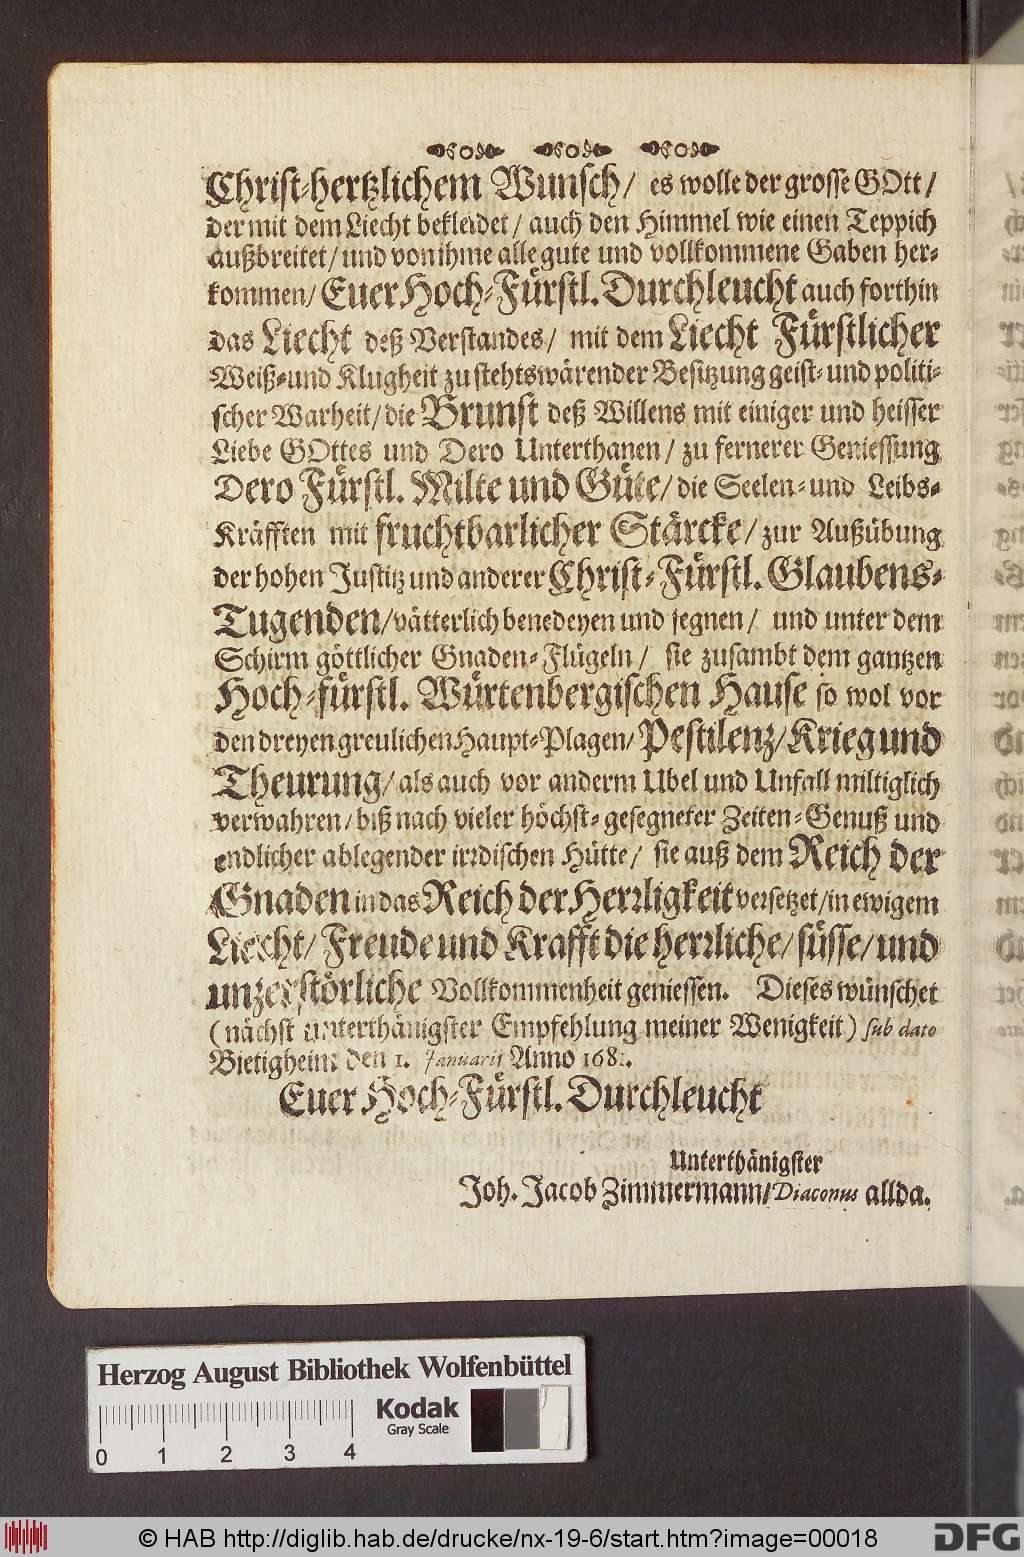 Christ-hertzlichem Wunsch/ es wolle der grosse GOtt/
der mit dem Liecht bekleidet/ auch den Himmel wie einen Teppich
außbreitet/ und von ihme alle gute und vollkommene Gaben her-
kommen/ Euer Hoch-Fürstl. Durchleucht auch forthin
das Liecht deß Verstandes/ mit dem Liecht Fürstlicher
Weiß- und Klugheit zu stehtswärender Besitzung geist- und politi-
scher Warheit/ die Brunst deß Willens mit einiger und heisser
Liebe GOttes und Dero Unterthanen/ zu fernerer Geniessung
Dero Fürstl. Milte und Güte/ die Seelen- und Leibs-
Kräfften mit fruchtbarlicher Stärcke/ zur Außübung
der hohen Justitz und anderer Christ-Fürstl. Glaubens-
Tugenden/ vätterlich benedeyen und segnen/ und unter dem
Schirm göttlicher Gnaden-Flügeln/ sie zusambt dem gantzen
Hoch-fürstl. Würtenbergischen Hause so wol vor
den dreyen greulichen Haupt-Plagen/ Pestilenz/ Krieg und
Theurung/ als auch vor anderm Ubel und Unfall miltiglich
verwahren/ biß nach vieler höchst-gesegneter Zeiten-Genuß und
endlicher ablegender irrdischen Hütte/ sie auß dem Reich der
Gnaden in das Reich der Herrligkeit versetzet/ in ewigem
Liecht/ Freude und Krafft die herrliche/ süsse/ und
unzerstörliche Vollkommenheit geniessen. Dieses wünschet
(nächst unterthänigster Empfehlung meiner Wenigkeit) sub dato
Bietigheim den 1. Januarii Anno
Euer Hoch-Fürstl. Durchleucht
Unterthänigster
Joh. Jacob Zimmermann/ Diaconus allda.
Herzog August Bibliothek Wolfenbüttel
Kodak
Gray Scale
0 1 2 3 4
© HAB http://diglib.hab.de/drucke/nx-19-6/start.htm?image=00018
DFG